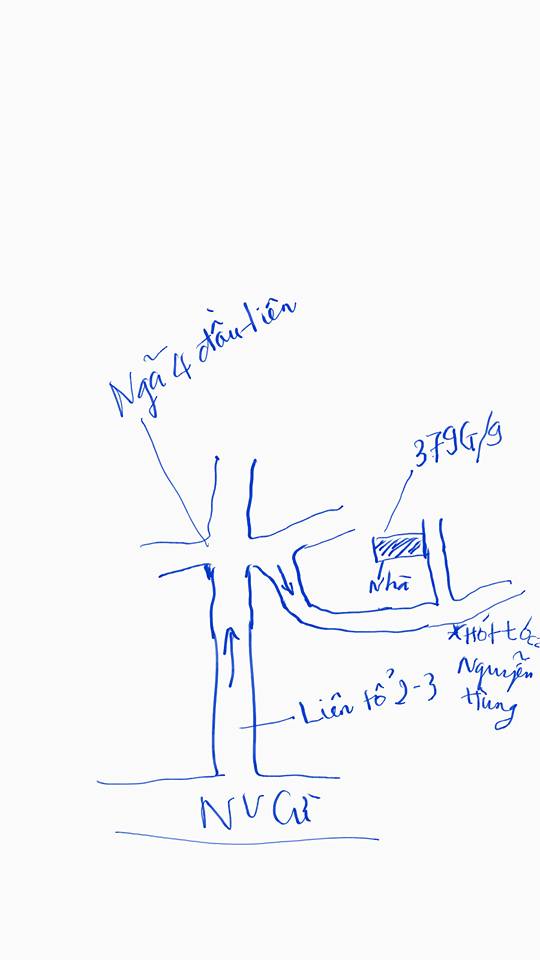 Ngã 4 đầu tiên
379G/9
Nhà
Hớt tóc
Nguyễn
Hùng
Liên tổ 2-3
NV Cừ